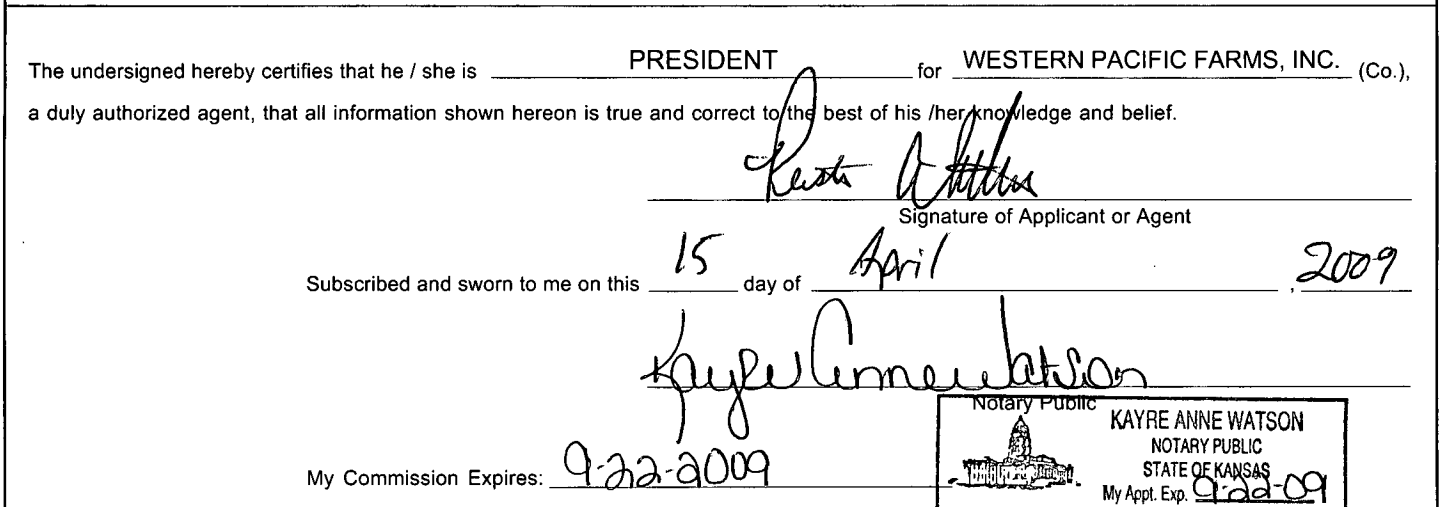 The undersigned hereby certifies that he / she is PRESIDENT for WESTERN PACIFIC FARMS, INC. (Co.),
a duly authorized agent, that all information shown hereon is true and correct to the best of his /her knowledge and belief.
Signature of Applicant or Agent
Subscribed and sworn to me on this 15 day of April , 2009
Kayre Anne Watson
Notary Public
KAYRE ANNE WATSON
NOTARY PUBLIC
STATE OF KANSAS
My Appt. Exp. 9-22-09
My Commission Expires: 9-22-2009